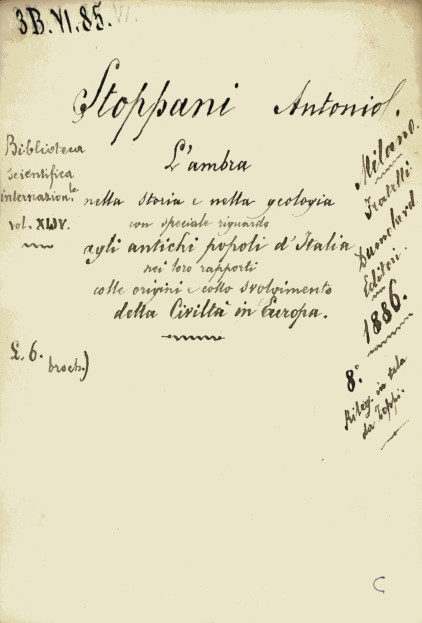 3B.VI.85. VI.
Stoppani Antonio.
L'ambra
nella storia e nella geologia
con speciale riguardo
agli antichi popoli d'Italia
nei loro rapporti
colle origini e collo svolgimento
della Civiltà in Europa.
Biblioteca
scientifica
internazion.le
vol. XLIV.
£. 6.
broch.)
Milano.
Fratelli
Dumolard
Editori.
1886.
8.°
Rileg. in tela
da Zoppi.
C